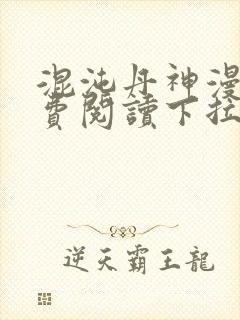 混沌丹神漫
費閱讀下拉
逆天霸王龍